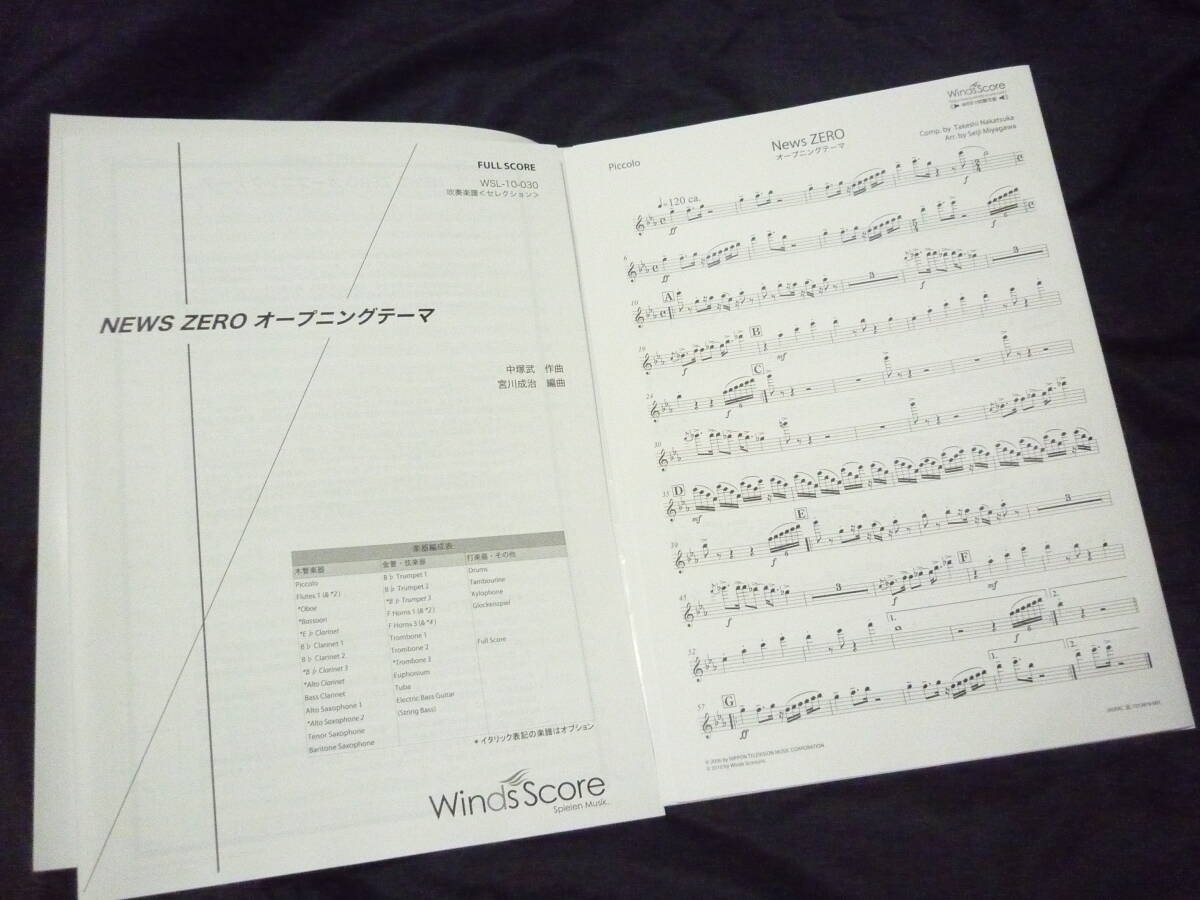 FULL SCORE
WSL-10-030
吹奏楽譜<セレクション>
NEWS ZERO オープニングテーマ
中塚武 作曲
宮川成治 編曲
楽器編成表
木管楽器
Piccolo
Flutes 1 (& *2)
*Oboe
*Bassoon
*E♭ Clarinet
B♭ Clarinet 1
B♭ Clarinet 2
*B♭ Clarinet 3
*Alto Clarinet
Bass Clarinet
Alto Saxophone 1
*Alto Saxophone 2
Tenor Saxophone
Baritone Saxophone
金管・弦楽器
B♭ Trumpet 1
B♭ Trumpet 2
*B♭ Trumpet 3
F Horns 1 (& *2)
F Horns 3 (& *4)
Trombone 1
Trombone 2
*Trombone 3
Euphonium
Tuba
Electric Bass Guitar
(String Bass)
打楽器・その他
Drums
Tambourine
Xylophone
Glockenspiel
Full Score
*イタリック表記の楽譜はオプション
Winds Score
Spielen Musik.
Winds Score
Piccolo
News ZERO
オープニングテーマ
Comp. by Takeshi Nakatsuka
Arr. by Seiji Miyagawa
♩=120 ca.
ff
f
6
ff
f
10
A
3
f
3
19
f
B
mf
24
f
6
C
30
35
D
mf
39
f
6
E
3
45
f
3
f
F
mf
52
1.
f
6
2.
57
G
ff
1.
2.
© 2006 by NIPPON TELEVISION MUSIC CORPORATION
© 2010 by Winds Score,Inc.